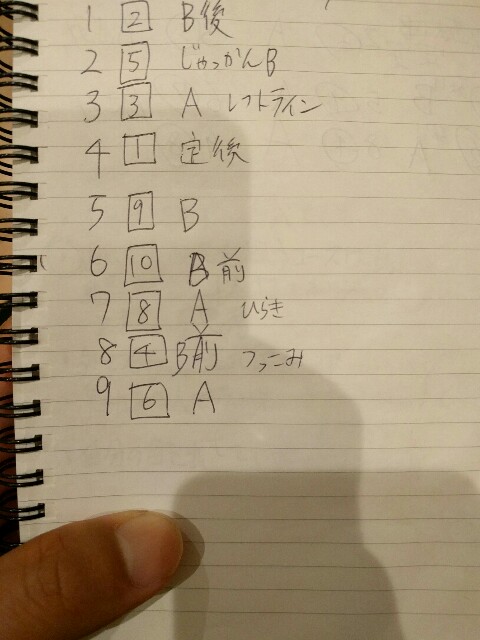 1 2 B後
2 5 じゃっかんB
3 3 A レフトライン
4 1 定後
5 9 B
6 10 B前
7 8 A ひらき
8 4 B前 つっこみ
9 6 A